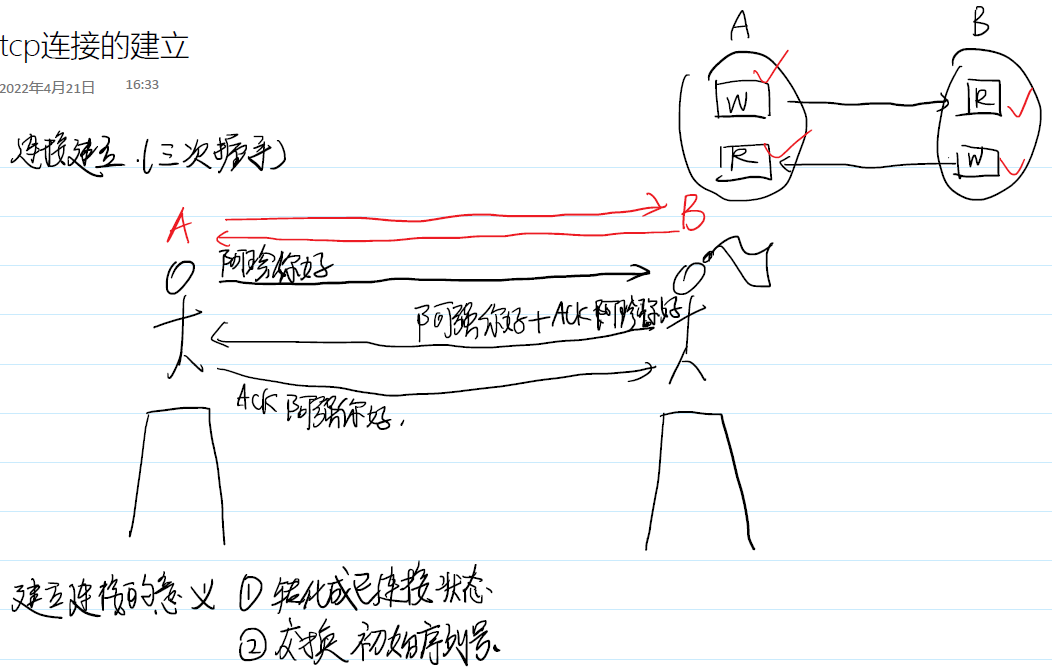 tcp连接的建立
2022年4月21日 16:33
连接建立.(三次握手)
A B
W R
R W
A B
阿珍你好
阿强你好+ACK阿珍你好
ACK 阿强你好.
建立连接的意义 ① 转化成已连接状态.
② 交换 初始序列号.